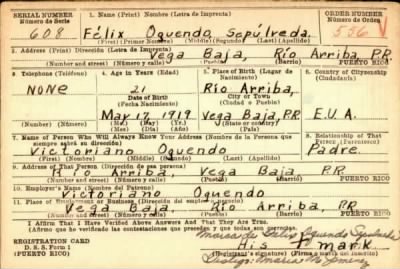 SERIAL NUMBER 1. NAME (Print) Nombre (Letra de Imprenta) ORDER NUMBER
Número de Serie Número de Orden
608 Félix Oquendo Sepúlveda 556 V
(First) (Primer Nombre) (Middle) (Segundo) (Last) (Apellido)
2. ADDRESS (Print) Dirección (Letra de Imprenta)
Vega Baja, Río Arriba, P.R.
PUERTO RICO
3. Telephone (Teléfono) 4. Age in Years (Edad) 5. Place of Birth (Lugar de Nacimiento) 6. Country of Citizenship (Ciudadanía)
None 21 Río Arriba,
Date of Birth (Fecha Nacimiento) City or Town (Ciudad o Pueblo)
May 17, 1919 Vega Baja, P.R. E.U.A.
(Mo.) (Day) (Yr.) (State or country)
7. Name of Person Who Will Always Know Your Address (Nombre de la Persona que siempre sabrá su dirección) 8. Relationship of That Person (Parentesco)
Victoriano Oquendo Padre
(First) (Nombre) (Middle) (Segundo) (Last) (Apellido)
9. Address of That Person (Dirección de esa persona)
Río Arriba, Vega Baja P.R.
PUERTO RICO
10. Employer's Name (Nombre del Patrono)
Victoriano Oquendo
11. Place of Employment or Business (Dirección del empleo o negocio)
Vega Baja, Río Arriba, P.R.
PUERTO RICO
I Affirm That I Have Verified Above Answers And That They Are True.
(Afirmo que he verificado las contestaciones que preceden y que son ciertas.)
REGISTRATION CARD
D. S. S. Form 1 His mark
(Puerto Rico) (Registrant's signature) (Firma